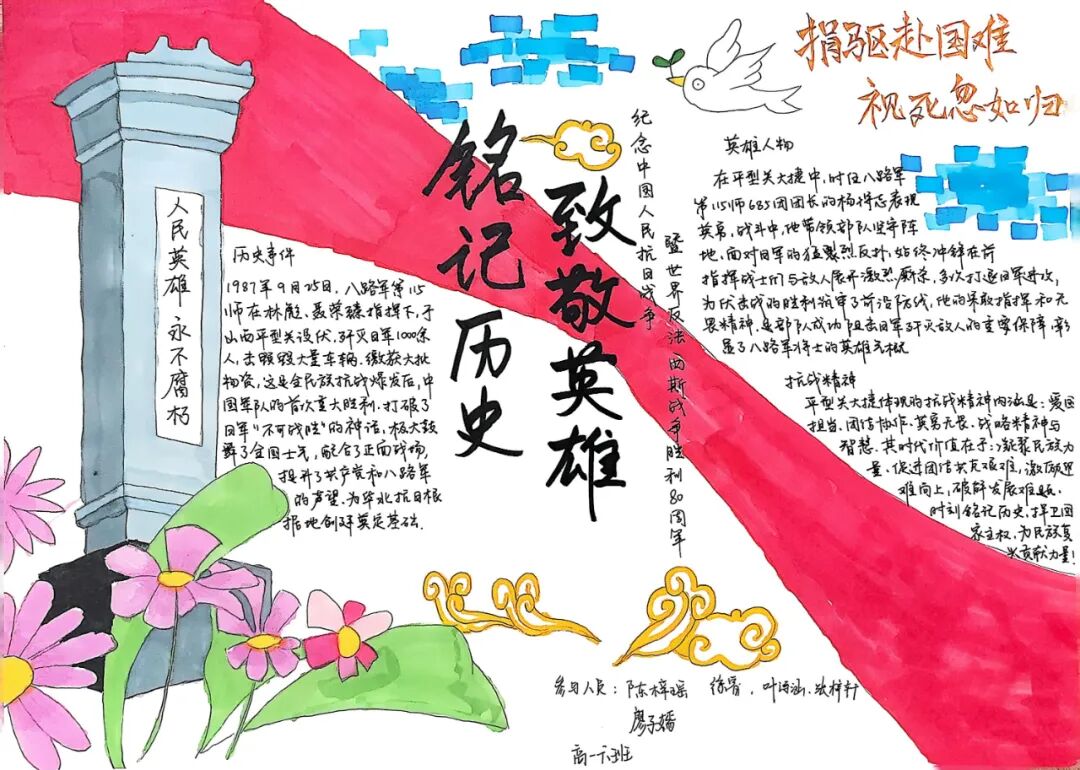 捐驱赴国难
视死忽如归
铭记历史
致敬英雄
纪念中国人民抗日战争
暨世界反法西斯战争胜利80周年
人民英雄永不腐朽
历史事件
1987年9月25日,八路军第115
师在林彪、聂荣臻指挥下,于
山西平型关设伏,歼灭日军1000余
人,击毁毁大量车辆,缴获大批
物资,这是全民族抗战爆发后,中
国军队的首次重大胜利,打破了
日军"不可战胜"的神话,极大鼓
舞了全国士气,配合了正面战场,
提升了共产党和八路军
的声望,为华北抗日根
据地创建奠定基础.
英雄人物
在平型关大捷中,时任八路军
第115师685团团长的杨得志表现
英勇,战斗中,他带领部队坚守阵
地,面对日军的猛烈反扑,始终冲锋在前
指挥战士们与敌人展开激烈厮杀,多次打退日军进攻,
为伏击战的胜利筑牢了前沿防线,他的果敢指挥和无
畏精神,是部队成功阻击日军歼灭敌人的重要保障,彰
显了八路军将士的英雄气概
抗战精神
平型关大捷体现的抗战精神内涵是:爱国
担当、团结协作、英勇无畏、战略精神与
智慧.其时代价值在于:凝聚民族力
量,促进团结共克艰难,激励迎
难向上,破解发展难题.
时刻铭记历史,捍卫国
家主权,为民族复
兴贡献力量!
参与人员:陈梓瑶 徐睿,叶
廖子嫱
高一六班